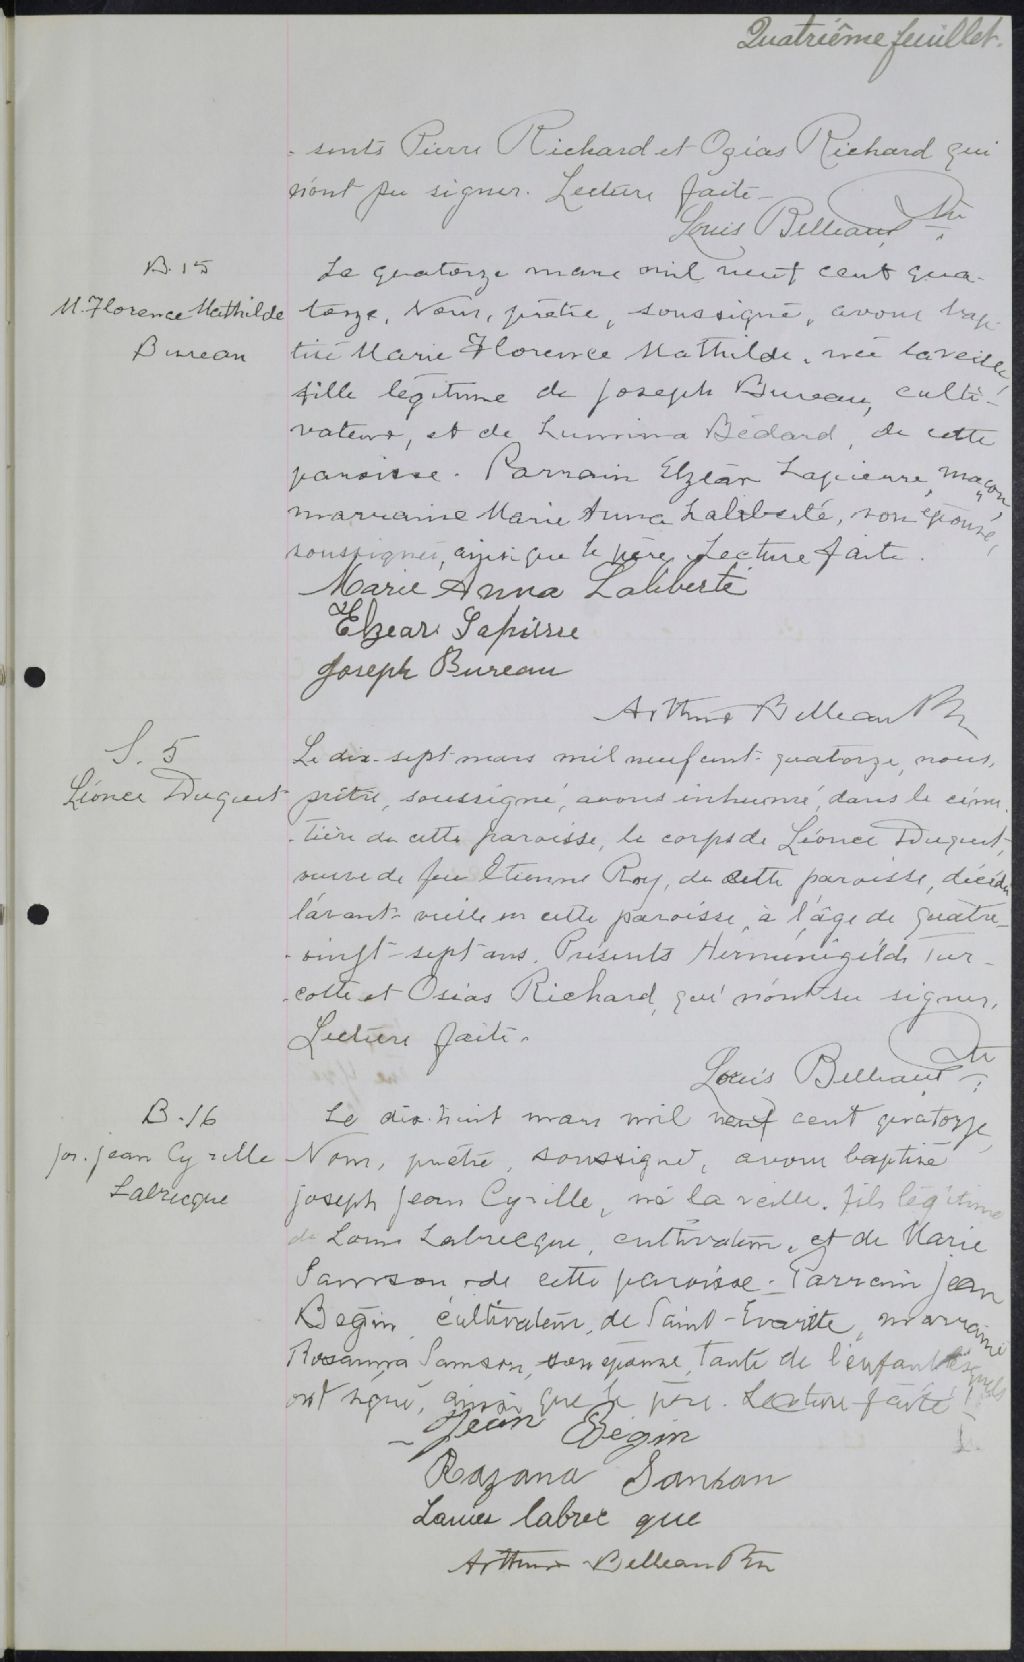 Quatrième feuillet.
- sents Pierre Richard et Ozias Richard qui
n'ont pu signer. Lecture faite -
Louis Belleau, Ptr
B. 15
M. Florence Mathilde
Bureau
Le quatorze mars mil neuf cent qua-
torze, Nous, prêtre, soussigné, avons bap-
tisé Marie Florence Mathilde, née la veille,
fille légitime de Joseph Bureau, culti-
vateur, et de Lumina Bédard, de cette
paroisse. Parrain Elzéar Lapierre, maçon,
marraine Marie Anna Laliberté, son épouse,
soussignés, ainsi que le père. Lecture faite.
Marie Anna Laliberté
Elzear Lapierre
Joseph Bureau
Arthur Belleau Ptr
S. 5
Léonce Duquet
Le dix-sept mars mil neuf cent quatorze, nous,
prêtre, soussigné, avons inhumé, dans le cime-
-tière de cette paroisse, le corps de Léonce Duquet,
veuve de feu Etienne Roy, de cette paroisse, décédée
l'avant-veille en cette paroisse, à l'âge de quatre-
-vingt-sept ans. Présents Herménégilde Tur-
-cotte et Osias Richard, qui n'ont su signer.
Lecture faite.
Louis Belleau Ptr
B.16
Jos. Jean Cyrille
Labrecque
Le dix-huit mars mil neuf cent quatorze,
Nous, prêtre, soussigné, avons baptisé
Joseph Jean Cyrille, né la veille, fils légitime
de Louis Labrecque, cultivateur, et de Marie
Samson de cette paroisse. Parrain Jean
Bégin, cultivateur, de Saint-Evariste, marraine
Rosanna Samson, son épouse, tante de l'enfant lesquels
ont signé, ainsi que le père. Lecture faite
Jean Bégin
Rozana Sanson
Louis labrec que
Arthur Belleau Ptr